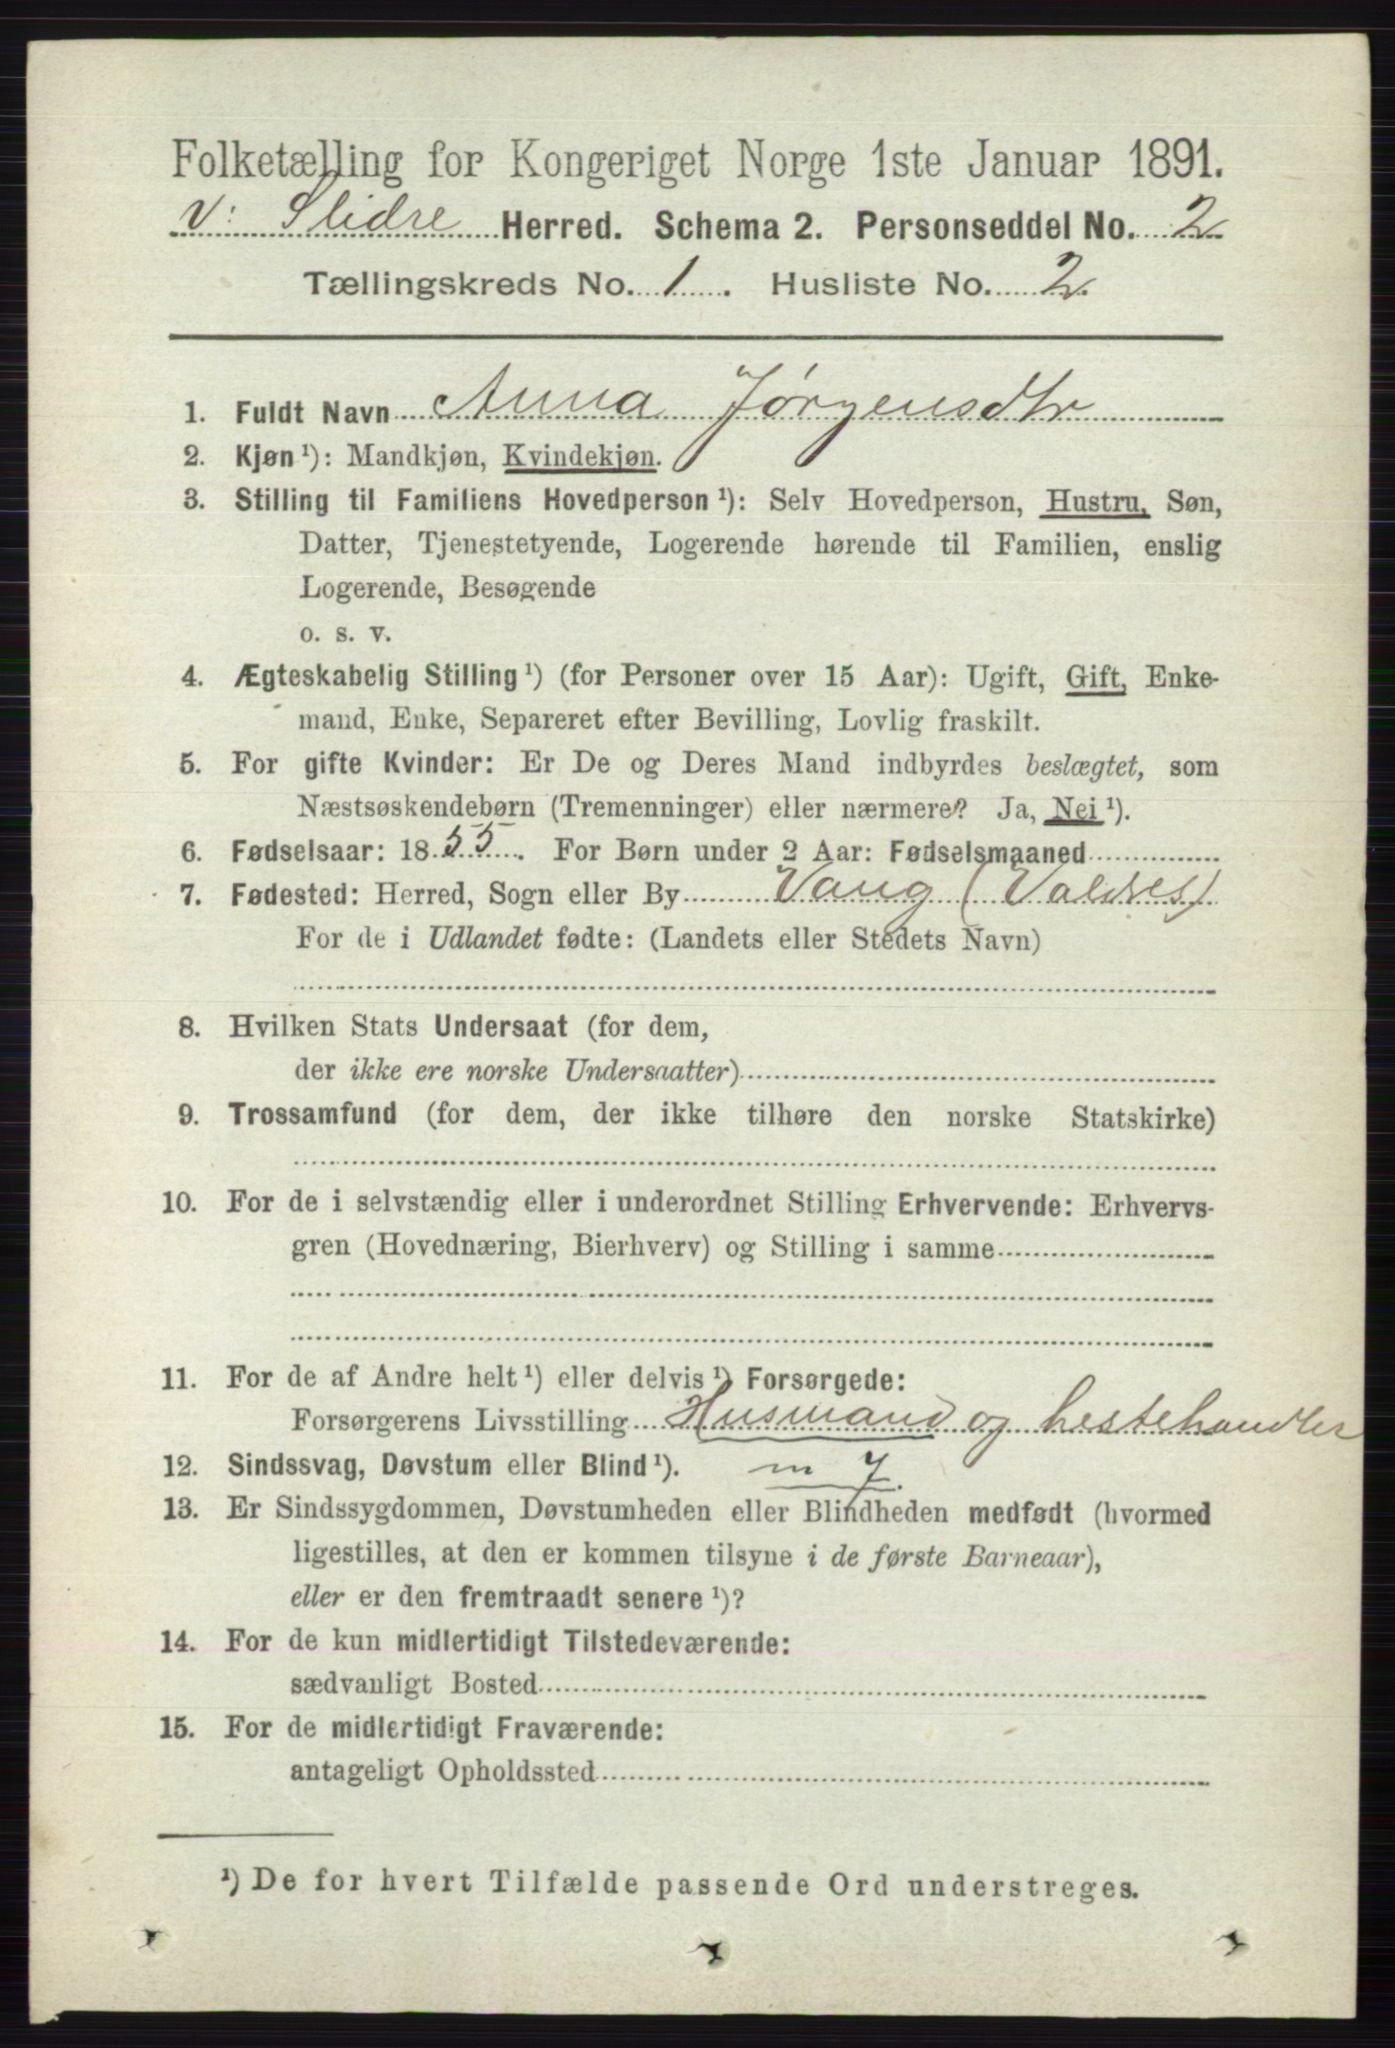 Folketælling for Kongeriget Norge 1ste Januar 1891.
V: Slidre Herred. Schema 2. Personseddel No. 2
Tællingskreds No. 1. Husliste No. 2.
1. Fuldt Navn Anna Jørgensdtr
2. Kjøn ¹): Mandkjøn, Kvindekjøn.
3. Stilling til Familiens Hovedperson ¹): Selv Hovedperson, Hustru, Søn,
Datter, Tjenestetyende, Logerende hørende til Familien, enslig
Logerende, Besøgende
o. s. v.
4. Ægteskabelig Stilling ¹) (for Personer over 15 Aar): Ugift, Gift, Enke-
mand, Enke, Separeret efter Bevilling, Lovlig fraskilt.
5. For gifte Kvinder: Er De og Deres Mand indbyrdes beslægtet, som
Næstsøskendebørn (Tremenninger) eller nærmere? Ja, Nei ¹).
6. Fødselsaar: 1855. For Børn under 2 Aar: Fødselsmaaned
7. Fødested: Herred, Sogn eller By Vang (Valdres)
For de i Udlandet fødte: (Landets eller Stedets Navn)
8. Hvilken Stats Undersaat (for dem,
der ikke ere norske Undersaatter)
9. Trossamfund (for dem, der ikke tilhøre den norske Statskirke)
10. For de i selvstændig eller i underordnet Stilling Erhvervende: Erhvervs-
gren (Hovednæring, Bierhverv) og Stilling i samme
11. For de af Andre helt ¹) eller delvis ¹) Forsørgede:
Forsørgerens Livsstilling Husmand og hestehandler
12. Sindssvag, Døvstum eller Blind ¹). m 7.
13. Er Sindssygdommen, Døvstumheden eller Blindheden medfødt (hvormed
ligestilles, at den er kommen tilsyne i de første Barneaar),
eller er den fremtraadt senere ¹)?
14. For de kun midlertidigt Tilstedeværende:
sædvanligt Bosted
15. For de midlertidigt Fraværende:
antageligt Opholdssted
¹) De for hvert Tilfælde passende Ord understreges.